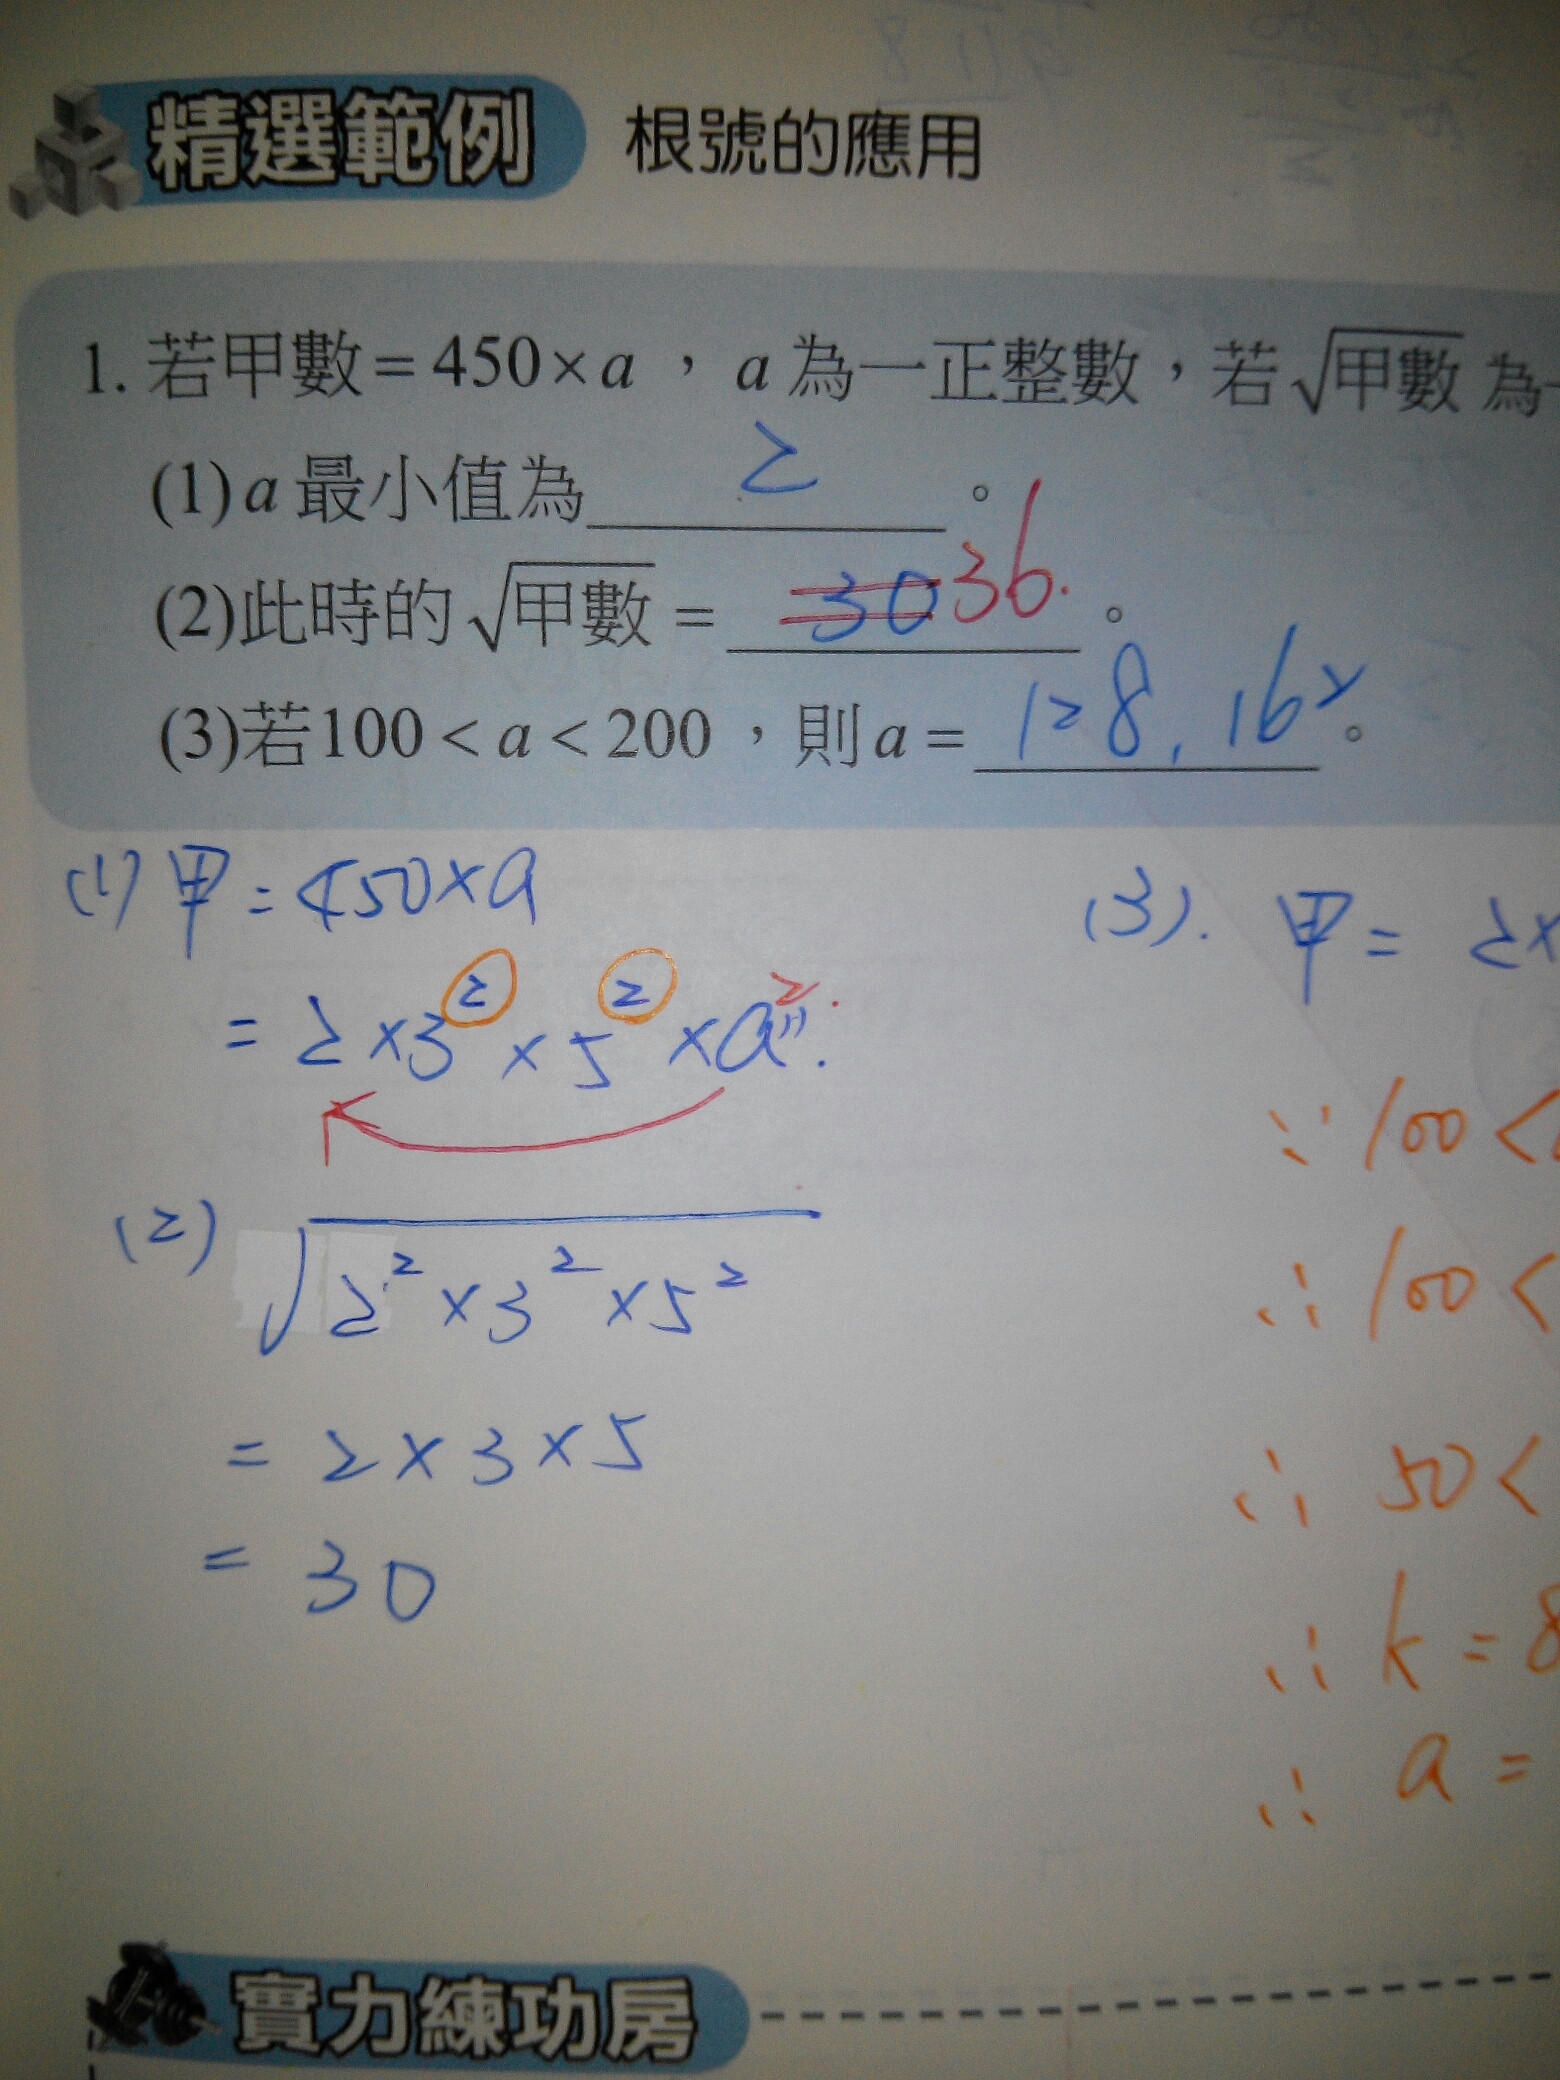 精選範例 根號的應用
1. 若甲數=450×a，a為一正整數，若√甲數 為一
(1)a最小值為 2 。
(2)此時的√甲數 = 30 36. 。
(3)若100<a<200，則a= 128, 162 。
(1) 甲=450×a
=2×3²×5²×a
2.
(2) √2²×3²×5²
=2×3×5
=30
(3). 甲= 2×
∵100<
∴100<
∴50<
∴k=8
∴a=
實力練功房